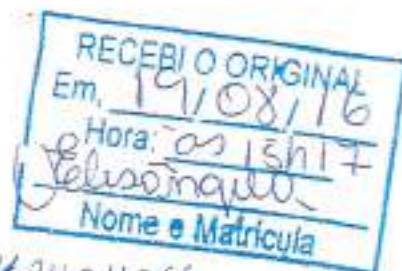 RECEBI O ORIGINAL
Em, 19/08/16
Hora: as 15h17
Elisangela
Nome e Matrícula